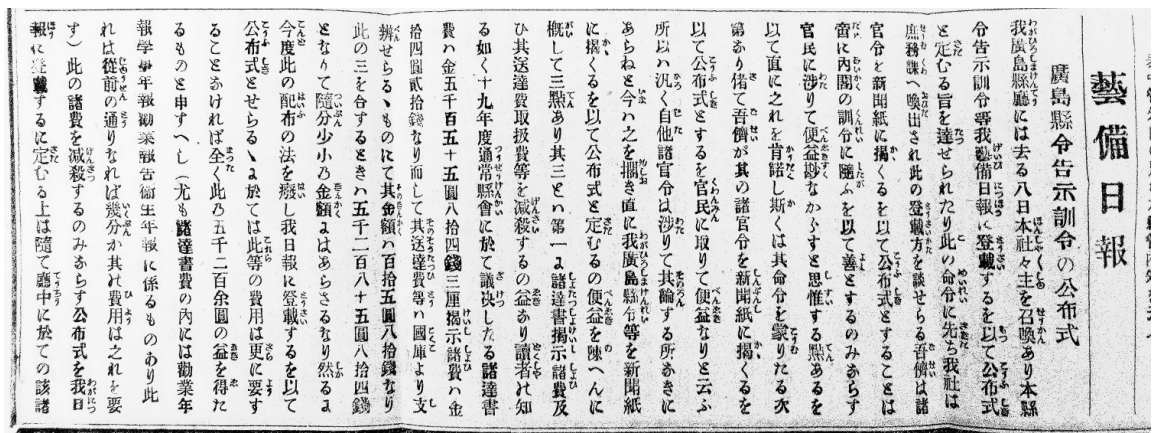 藝備日報
廣島縣令告示訓令の公布式
我廣島縣廳には去る八日本社々主を召喚あり本縣
令告示訓令等我藝備日報に登載するを以て公布式
と定むる旨を達せられたり此の命令に先ち我社は
庶務課へ喚出され此の登載方を談せらる吾儕は諸
官令を新聞紙に揭くるを以て公布式とすることは
啻に內閣の訓令に隨ふを以て善とするのみならす
官民に涉りて便益尠なからすと思惟する點あるを
以て直に之れを肯諾し斯くは其命令を蒙りたる次
第あり偖て吾儕が其の諸官令を新聞紙に揭くるを
以て公布式とするを官民に取りて便益なりと云ふ
所以ハ汎く自他諸官令は涉りて其論する所あきに
あらねと今ハ之を擱き直に我廣島縣令等を新聞紙
に揭くるを以て公布式と定むるの便益を陳へんに
概して三點あり其三とハ第一ょ諸達書揭示諸費及
ひ其送達費取扱費等を減殺するの益あり讀者れ知
る如く十九年度通常縣會に於て議决したる諸達書
費ハ金五千百五十五圓八拾四錢三厘揭示諸費ハ金
拾四圓貳拾錢なり而して其送達費等ハ國庫より支
辨せらるゝものにて其金額ハ百拾五圓八拾錢なり
此の三を合するときハ五千二百八十五圓八拾四錢
となりて隨分少小乃金額ょはあらさるなり然るょ
今度此の配布の法を癈し我日報に登載するを以て
公布式とせらるゝょ於ては此等の費用は更に要す
ることあければ全く此乃五千二百余圓の益を得た
るものと申すへし(尤も諸達書費の內には勸業年
報學事年報勸業報告衞生年報に係るものあり此
れは從前の通りなれば幾分か其れ費用は之れを要
す)此の諸費を減殺するのみあらす公布式を我日
報に登載するに定むる上は隨て廳中に於ての該諸